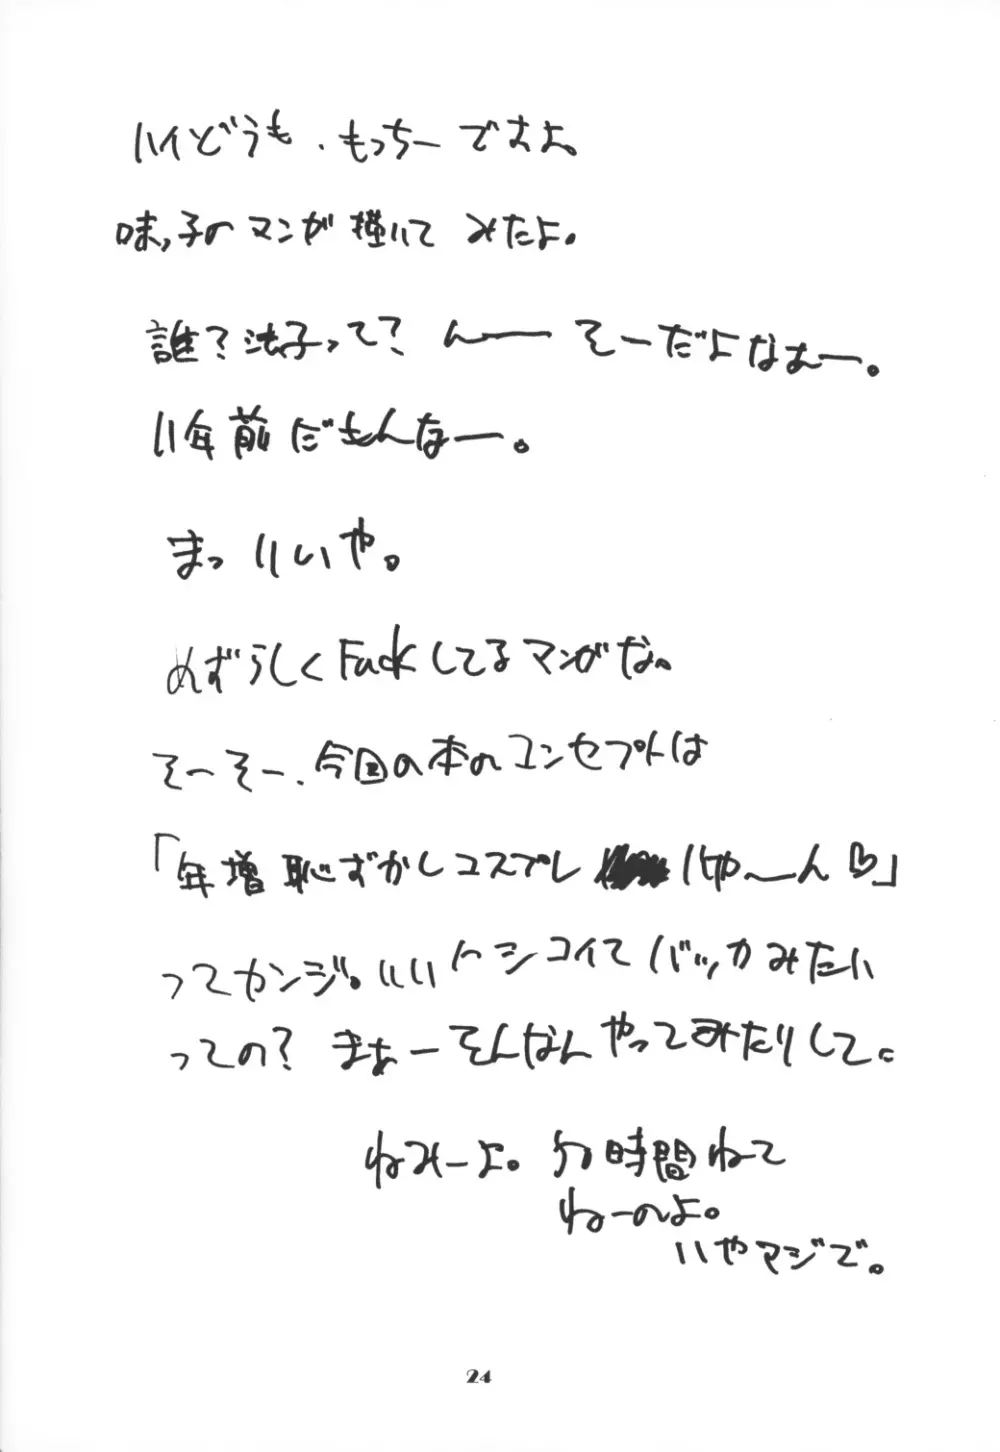 ハイどうも、もっちーですよ。
味っ子のマンガ描いてみたよ。
誰？法子って？んーーそーだよなぁー。
11年前だもんなー。
まっいいや。
めずらしくFuckしてるマンガな。
そーそー、今回の本のコンセプトは
「年増恥ずかしコスプレ いや〜ん♡」
ってカンジ。いいトシコイてバッカみたい
っての？まぁーそんなんやってみたりして。
ねみーよ。 時間ねて
ねーのよ。
いやマジで。
24